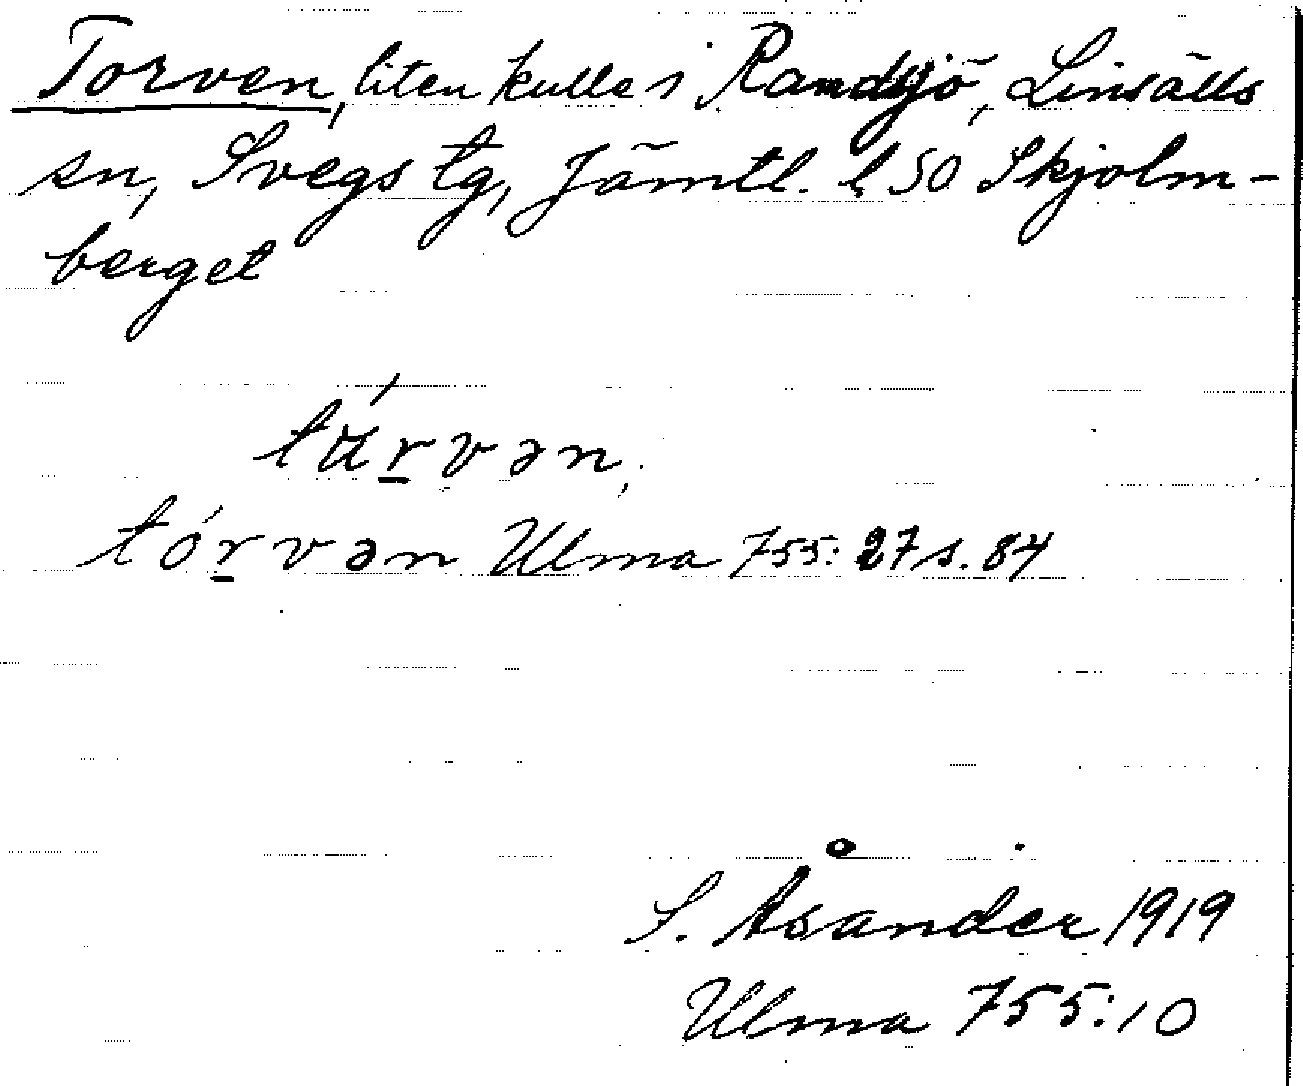 Torven, liten kulle i Randsjö, Linsälls
sn, Svegs tg, Jämtl. l SO Skjolm-
berget
tárvən,
tórvən Ulma 755:27 s. 84
S. Åsander 1919
Ulma 755:10